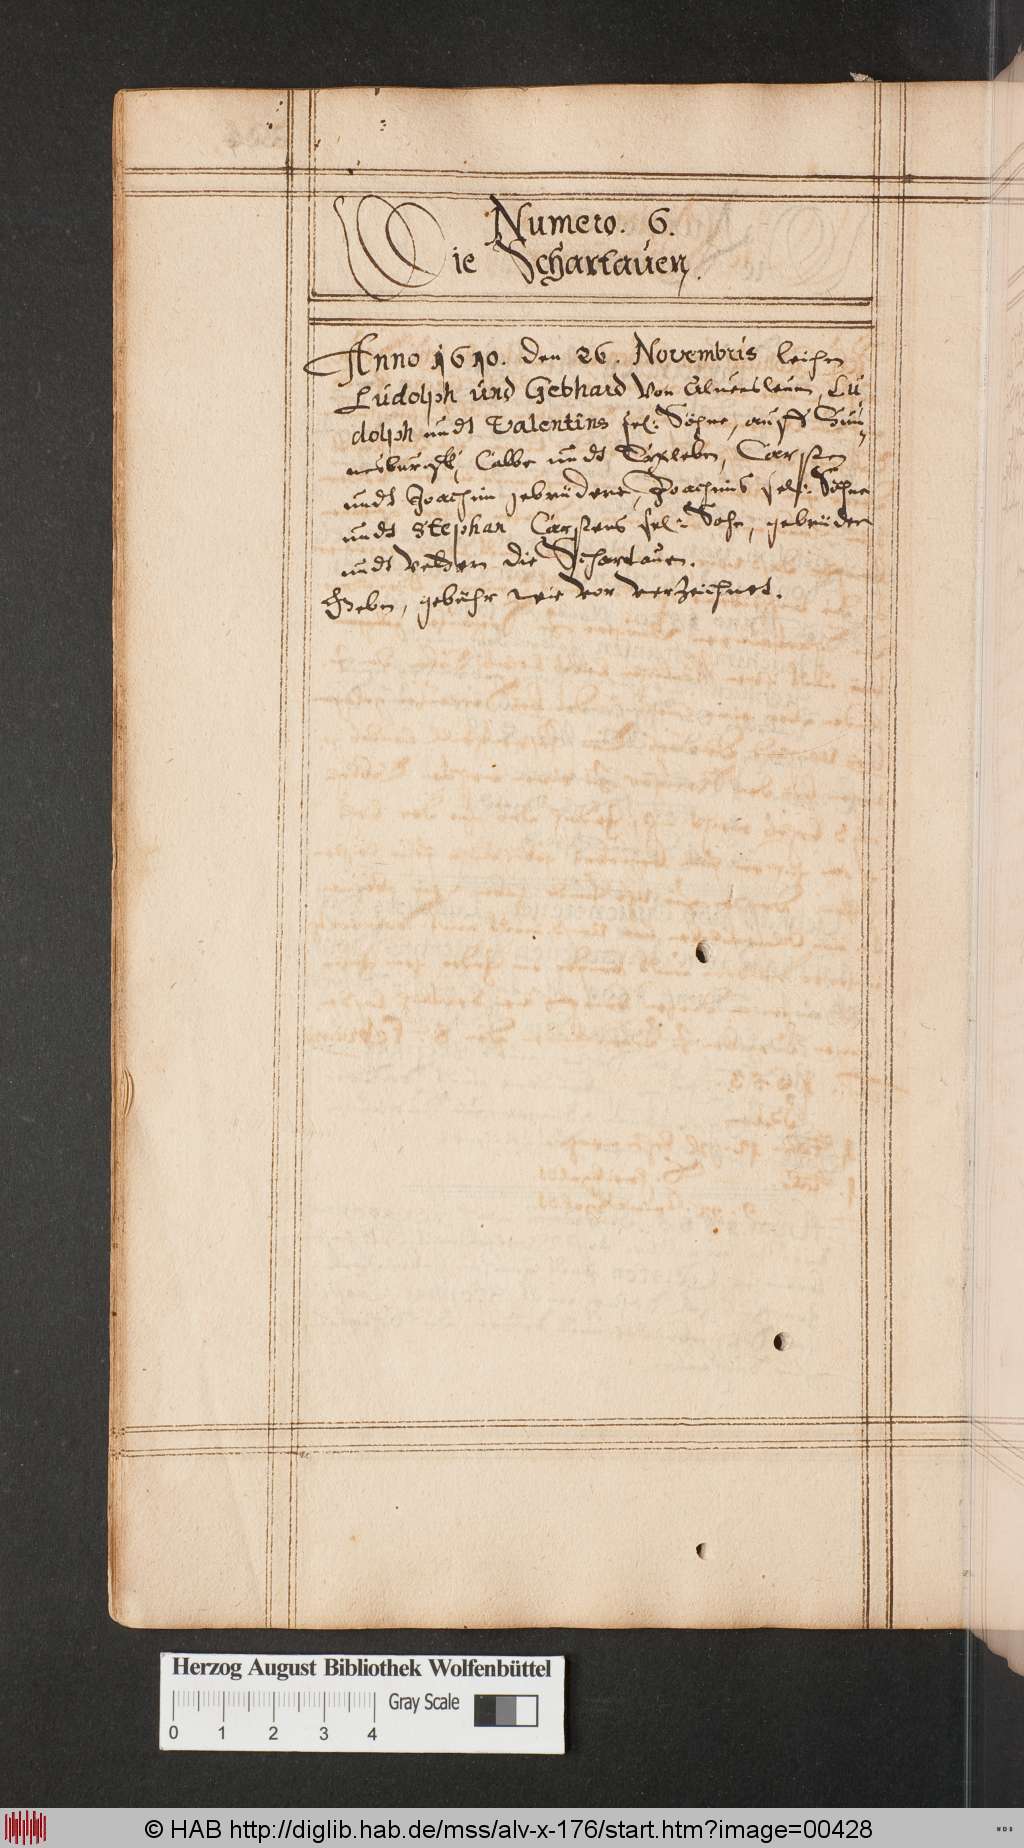 Numero. 6.
Die Schartauen.
Anno 1610. den 26. Novembris leihen
Ludolph und Gebhard von Aluensleuen, Lu
dolph undt Valentins sel: Söhne, auff Hun„
nesburgk, Calbe undt Erxleben, Carsten
undt Joachim gebrüdere, Joachims sel: Söhne
undt Stephan Carstens sel: Sohn, gebrüdern
undt Veddern die Schartauen.
Geben, gebühr wie vor verzeichnet.
Herzog August Bibliothek Wolfenbüttel
Gray Scale
0 1 2 3 4
© HAB http://diglib.hab.de/mss/alv-x-176/start.htm?image=00428